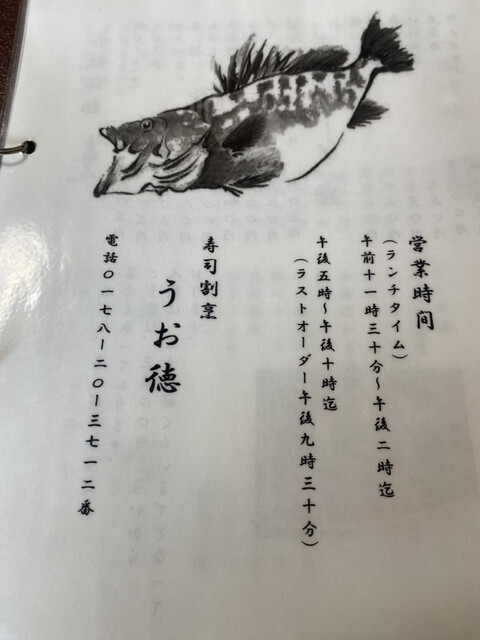 営業時间
(ランチタイム)
午前十一時三十分～午後二時迄
午後五時～午後十時迄
(ラストオーダー午後九時三十分)
寿司割烹
うお徳
電話〇一七八ー二〇ー三七一二番